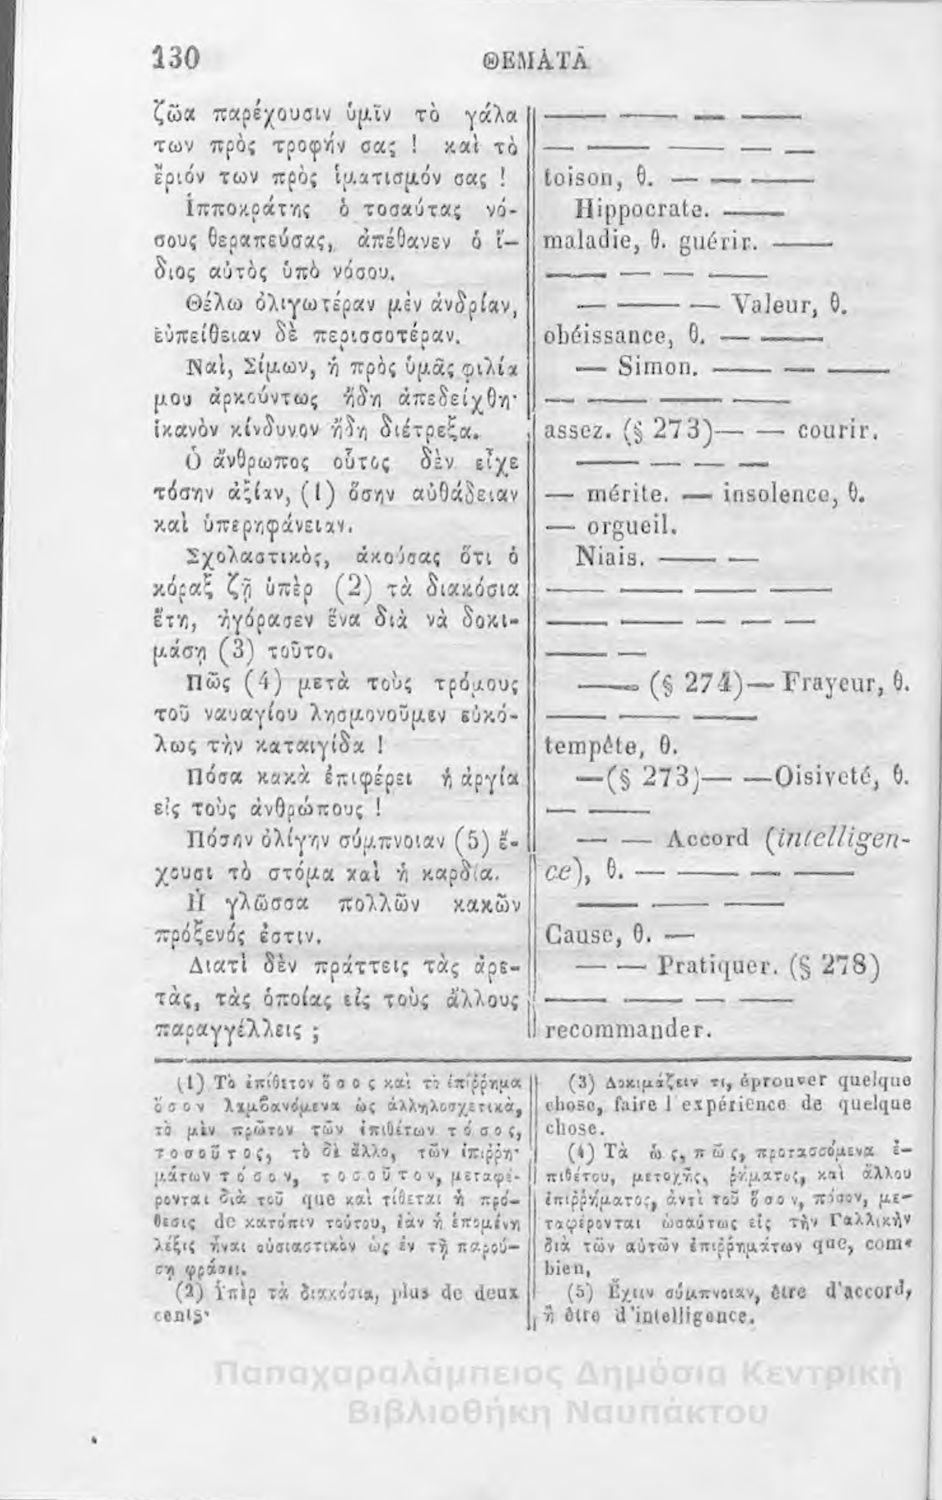 130
ΘΕΜΑΤΑ
ζῶα παρέχουσιν ὑμῖν τὸ γάλα
των πρὸς τροφήν σας ! καὶ τὸ
ἔριόν των πρὸς ἱματισμόν σας !
Ἱπποκράτης ὁ τοσαύτας νό-
σους θεραπεύσας, ἀπέθανεν ὁ ἴ-
διος αὐτὸς ὑπὸ νόσου.
Θέλω ὀλιγωτέραν μὲν ἀνδρίαν,
εὐπείθειαν δὲ περισσοτέραν.
Ναὶ, Σίμων, ἡ πρὸς ὑμᾶς φιλία
μου ἀρκούντως ἤδη ἀπεδείχθη·
ἱκανὸν κίνδυνον ἤδη διέτρεξα.
Ὁ ἄνθρωπος οὗτος δὲν εἶχε
τόσην ἀξίαν, (1) ὅσην αὐθάδειαν
καὶ ὑπερηφάνειαν.
Σχολαστικὸς, ἀκούσας ὅτι ὁ
κόραξ ζῇ ὑπὲρ (2) τὰ διακόσια
ἔτη, ἠγόρασεν ἕνα διὰ νὰ δοκι-
μάσῃ (3) τοῦτο.
Πῶς (4) μετὰ τοὺς τρόμους
τοῦ ναυαγίου λησμονοῦμεν εὐκό-
λως τὴν καταιγίδα !
Πόσα κακὰ ἐπιφέρει ἡ ἀργία
εἰς τοὺς ἀνθρώπους !
Πόσην ὀλίγην σύμπνοιαν (5) ἔ-
χουσι τὸ στόμα καὶ ἡ καρδία.
Ἡ γλῶσσα πολλῶν κακῶν
πρόξενός ἐστιν.
Διατὶ δὲν πράττεις τὰς ἀρε-
τὰς, τὰς ὁποίας εἰς τοὺς ἄλλους
παραγγέλλεις ;
— — — —
— — — — —
toison, θ. — — —
Hippocrate. —
maladie, θ. guérir. —
— — — —
— — — Valeur, θ.
obéissance, θ. — —
— Simon. — — —
— — — —
assez. (§ 273)— — courir.
— — — —
— mérite. — insolence, θ.
— orgueil.
Niais. — —
— — — —
— — — — —
— —
— (§ 274)— Frayeur, θ.
— — —
tempête, θ.
—(§ 273)— —Oisiveté, θ.
— —
— — Accord (intelligen-
ce), θ. — — — —
— — —
Cause, θ. —
— — Pratiquer. (§ 278)
— — — —
recommander.
(1) Τὸ ἐπίθετον ὅσος καὶ τὸ ἐπίῤῥημα
ὅσον λαμβανόμενα ὡς ἀλληλοσχετικὰ,
τὸ μὲν πρῶτον τῶν ἐπιθέτων τόσος,
τοσοῦτος, τὸ δὲ ἄλλο, τῶν ἐπιῤῥη-
μάτων τόσον, τοσοῦτον, μεταφέ-
ρονται διὰ τοῦ que καὶ τίθεται ἡ πρό-
θεσις de κατόπιν τούτου, ἐὰν ἡ ἑπομένη
λέξις ἦναι οὐσιαστικὸν ὡς ἐν τῇ παρού-
σῃ φράσει.
(2) Ὑπὲρ τὰ διακόσια, plus de deux
cents·
(3) Δοκιμάζειν τι, éprouver quelque
chose, faire l'expérience de quelque
chose.
(4) Τὰ ὡς, πῶς, προτασσόμενα ἐ-
πιθέτου, μετοχῆς, ῥήματος, καὶ ἄλλου
ἐπιῤῥήματος, ἀντὶ τοῦ ὅσον, πόσον, με-
ταφέρονται ὡσαύτως εἰς τὴν Γαλλικὴν
διὰ τῶν αὐτῶν ἐπιῤῥημάτων que, com-
bien,
(5) Ἔχειν σύμπνοιαν, être d'accord,
ἢ être d'intelligence.
Παπαχαραλάμπειος Δημόσια Κεντρική
Βιβλιοθήκη Ναυπάκτου